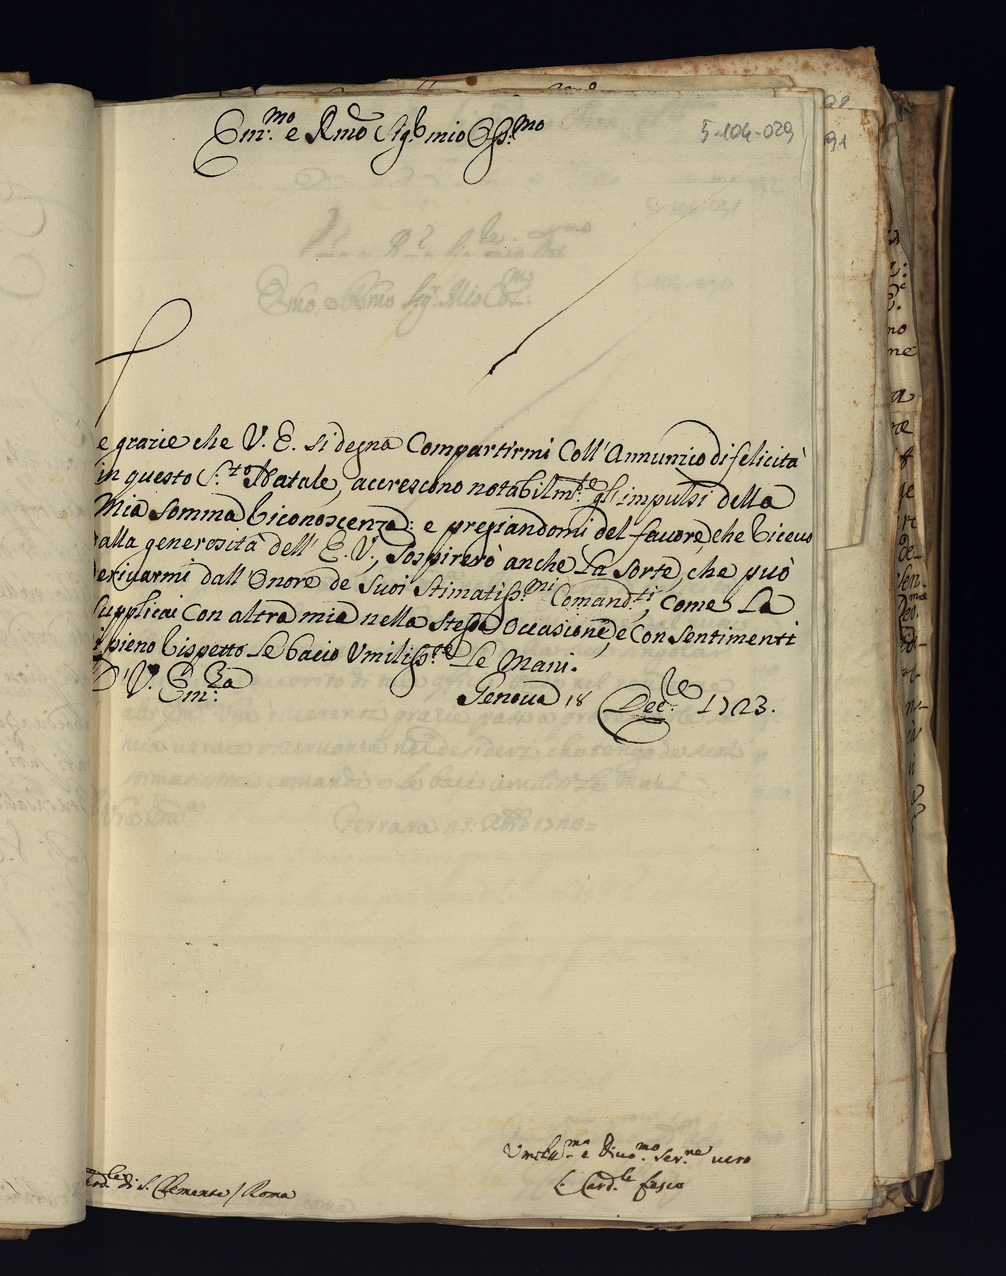 Em.mo e Rmo Sig.r mio Oss.mo
5-104-029
Le grazie che V. E. si degna Compartirmi Coll'Annunzio di felicità
in questo S.to Natale, accrescono notabilm.te gl'impulsi della
Mia Somma riconoscenza: e pregiandomi del favore, che ricevo
dalla generosità dell'E. V., Sospirerò anche La Sorte, che può
derivarmi dall'Onore de Suoi Stimatiss.mi Comand.ti, come La
Supplicai con altra mia nella stessa occasione, e con sentimenti
di pieno rispetto Le bacio Umiliss.te Le Mani.
D'V. Em.za
Genova 18 Dec.re 1723.
Umiliss.mo e Divo.mo Ser.re vero
L. Card.le Fesco
Card.le di S. Clemente / Roma